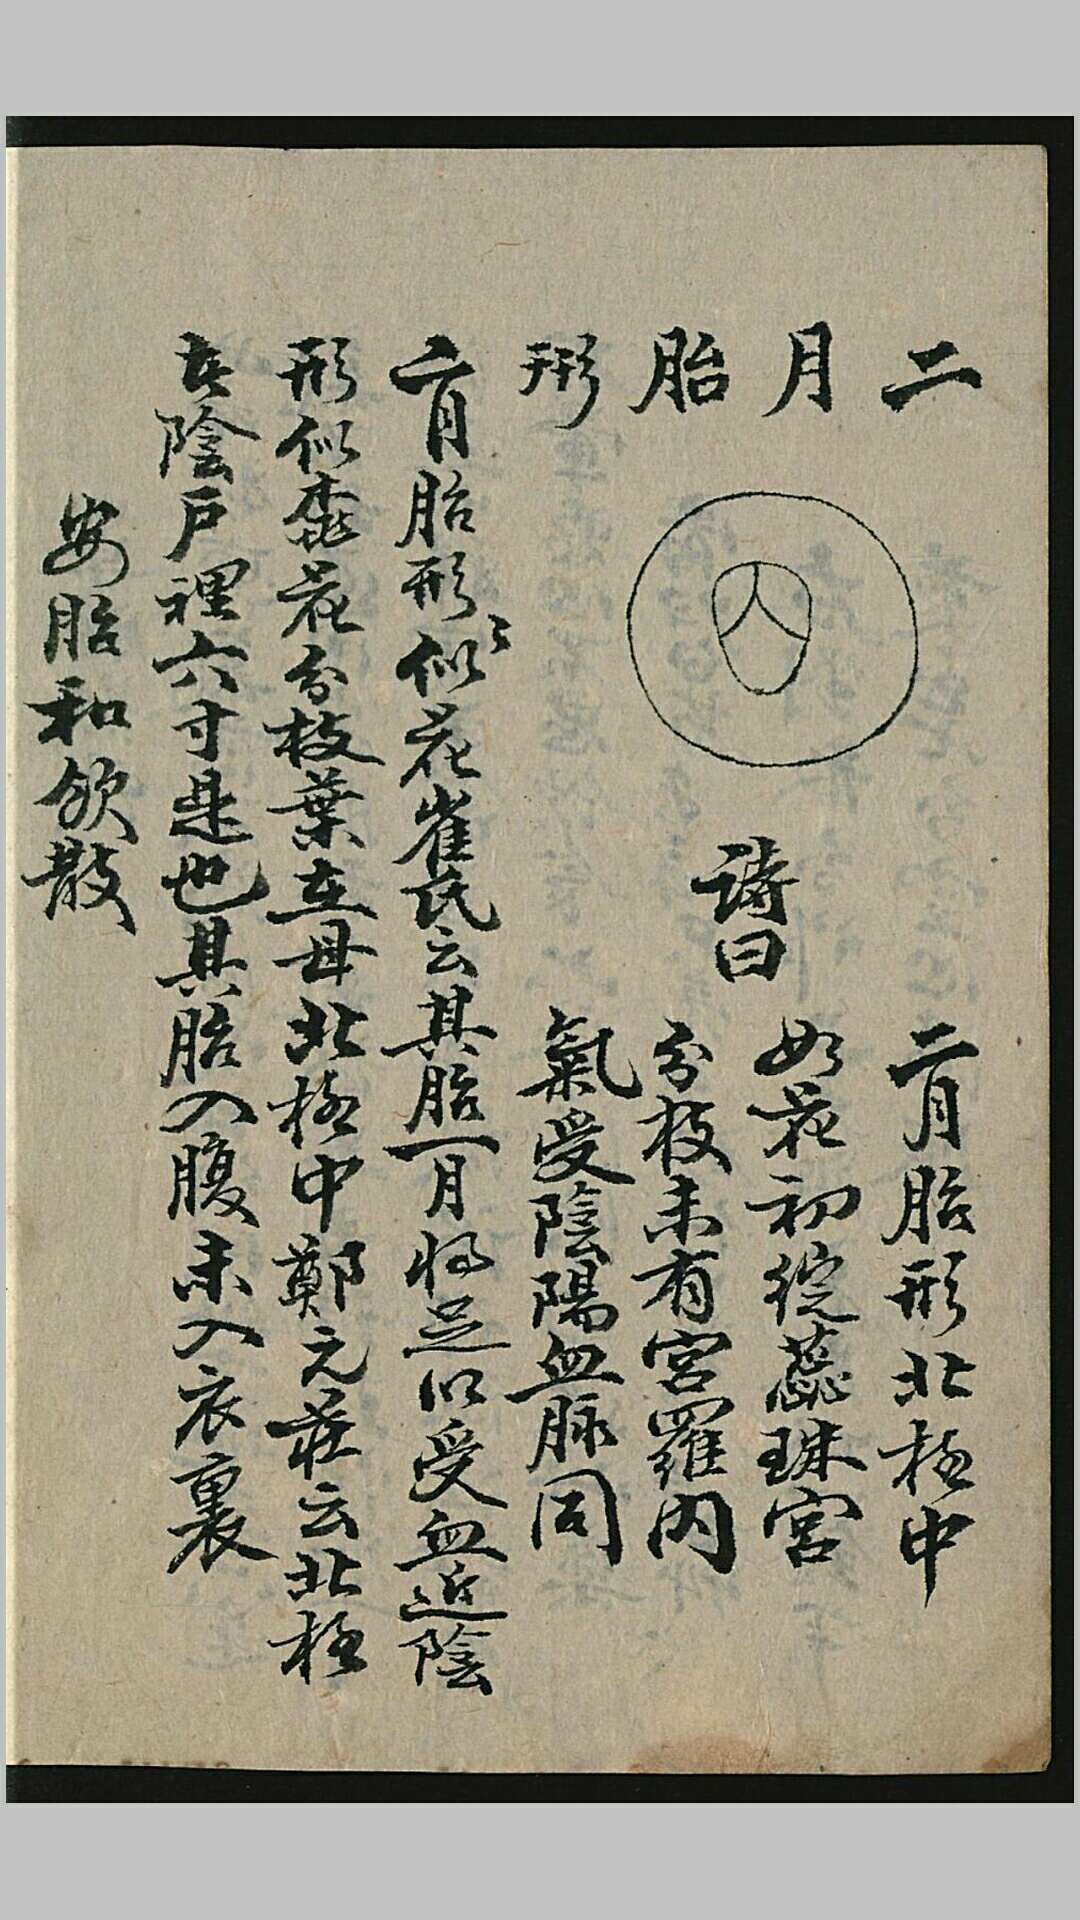 二月胎形
詩曰
二月胎形北極中
如花初綻蕊珠宮
分枝未有宮羅內
氣受陰陽血脉同
二月胎形〻似花崔氏云其胎一月將足以受血近陰
形似桃花分枝葉在母北極中鄭元莊云北極
在陰戶裡六寸是也其胎入腹未入衣裹
安胎和飲散